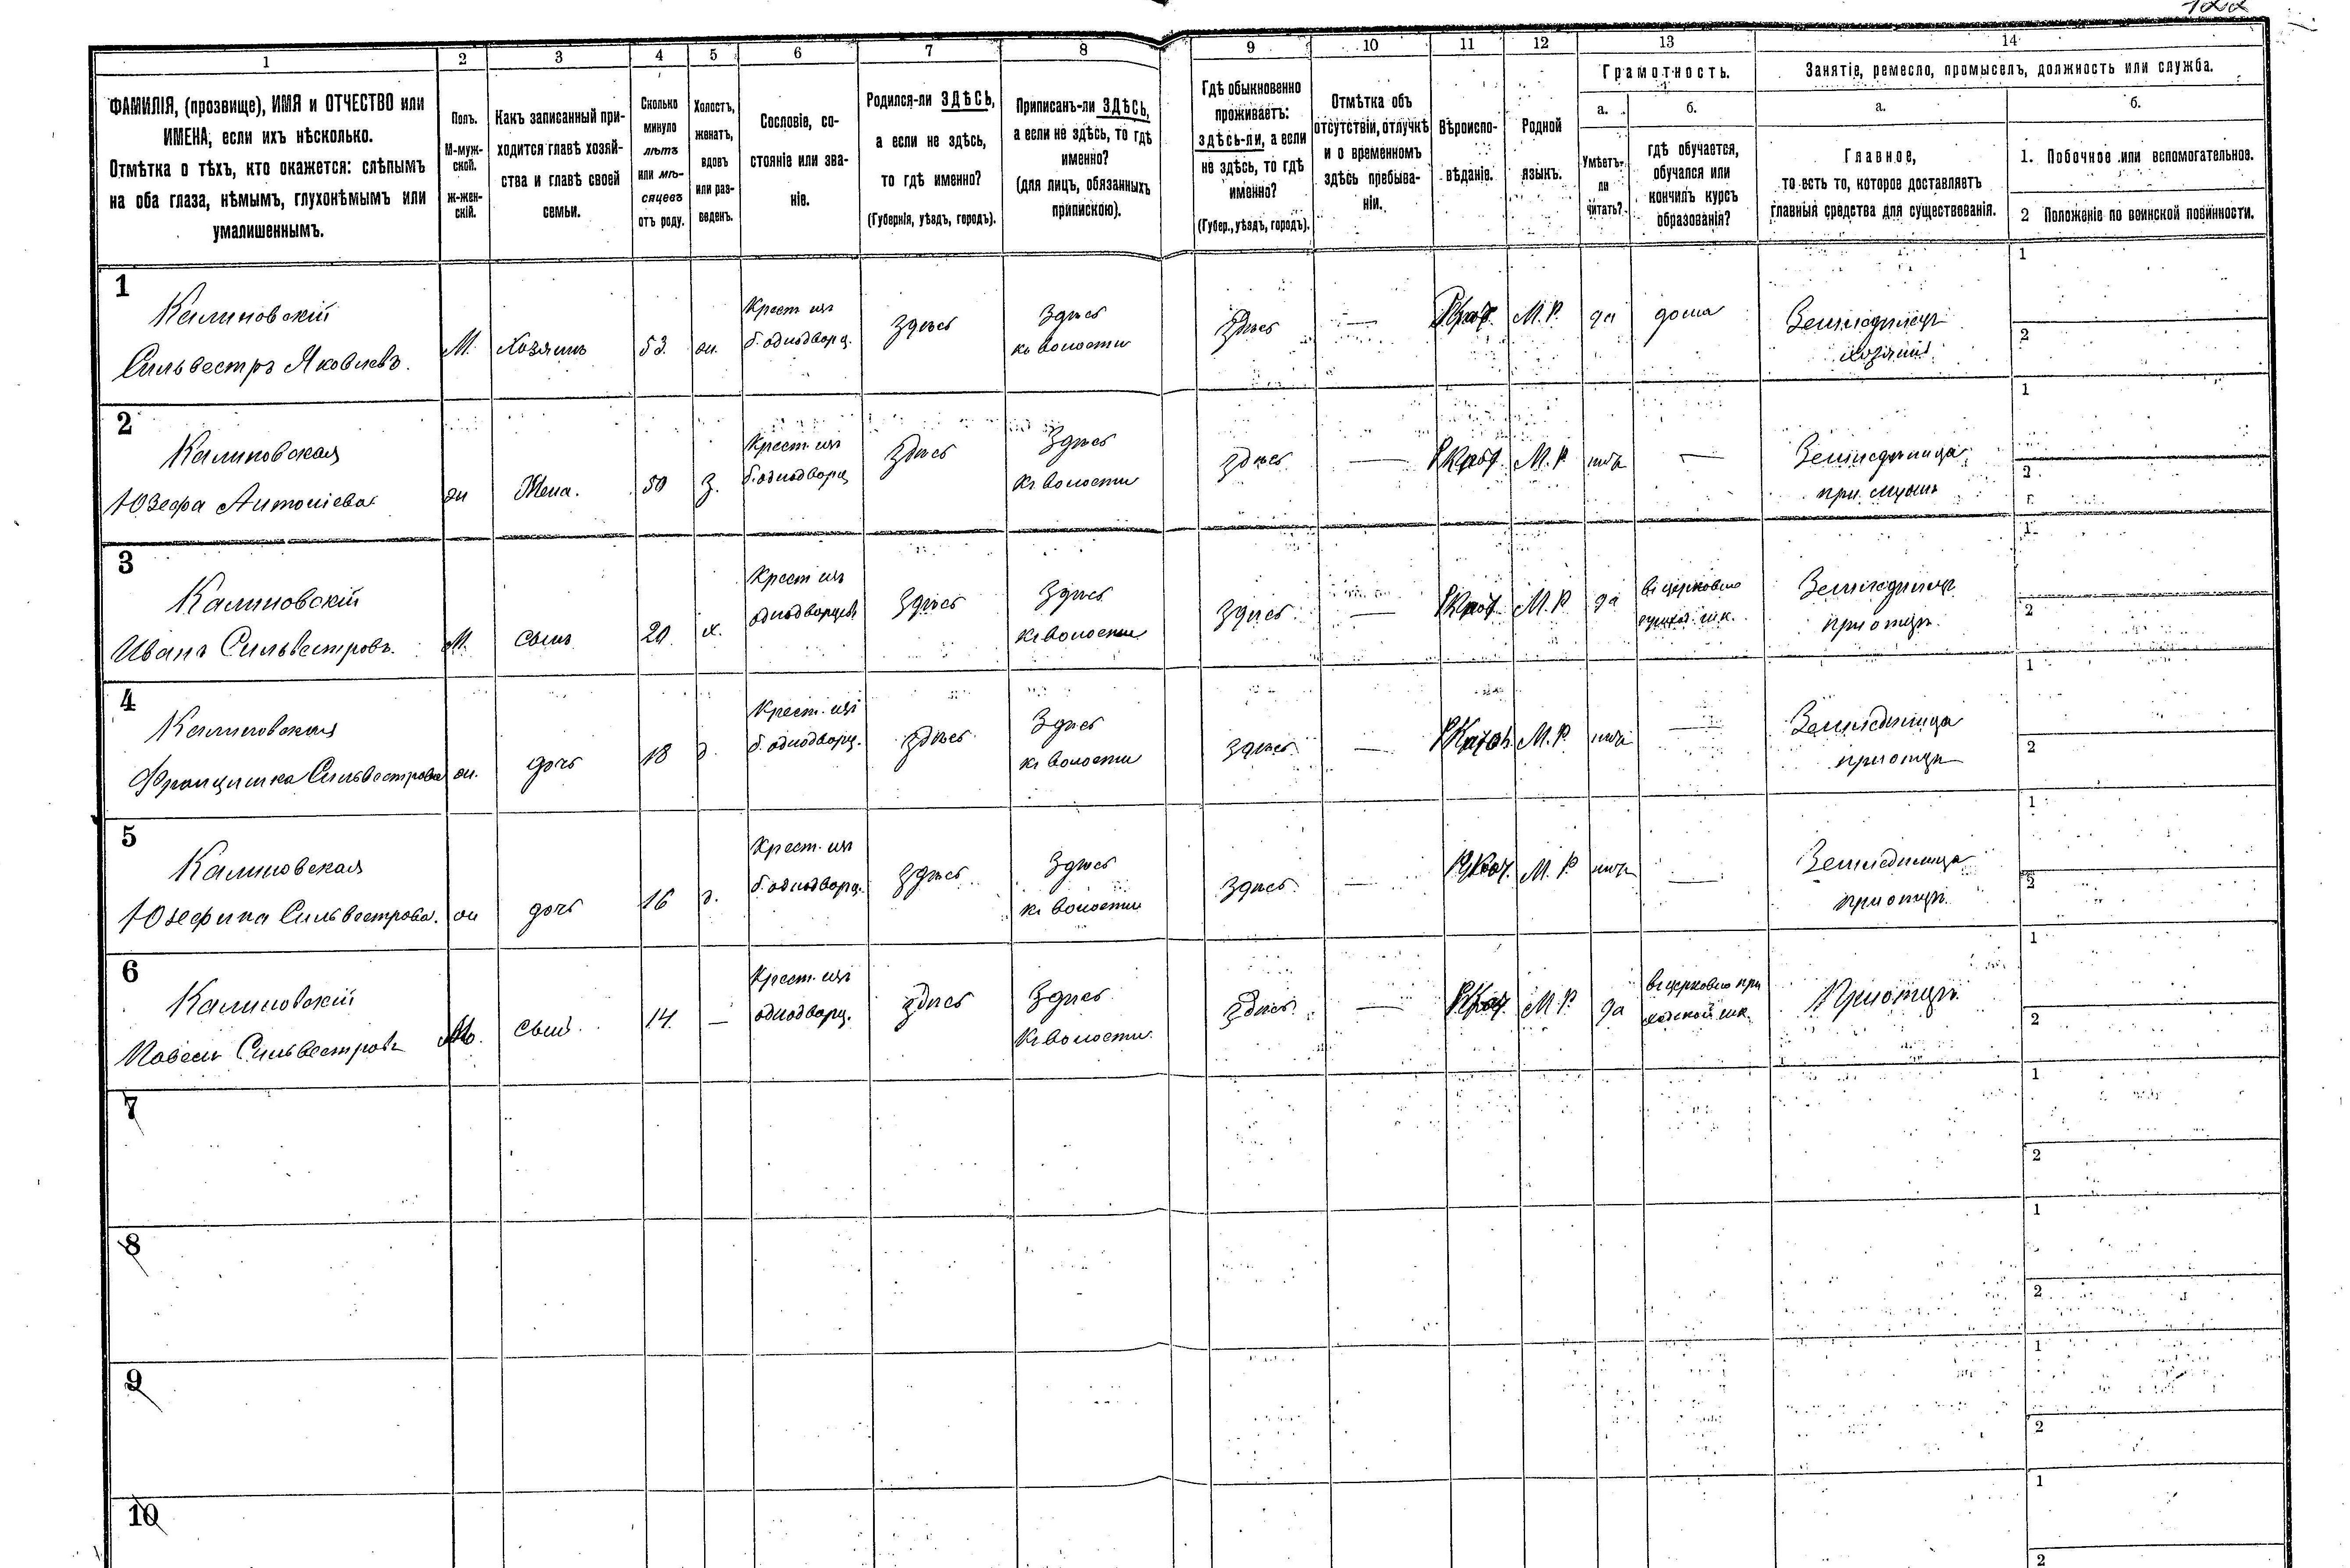 122
1 2 3 4 5 6 7 8 9 10 11 12 13 14
ФАМИЛІЯ, (прозвище), ИМЯ и ОТЧЕСТВО или
ИМЕНА, если ихъ нѣсколько.
Отмѣтка о тѣхъ, кто окажется: слѣпымъ
на оба глаза, нѣмымъ, глухонѣмымъ или
умалишеннымъ.
Полъ.
М-муж-
ской.
ж-жен-
скій.
Какъ записанный при-
ходится главѣ хозяй-
ства и главѣ своей
семьи.
Сколько
минуло
лѣтъ
или мѣ-
сяцевъ
отъ роду.
Холостъ,
женатъ,
вдовъ
или раз-
веденъ.
Сословіе, со-
стояніе или зва-
ніе.
Родился-ли ЗДѢСЬ,
а если не здѣсь,
то гдѣ именно?
(Губернія, уѣздъ, городъ).
Приписанъ-ли ЗДѢСЬ,
а если не здѣсь, то гдѣ
именно?
(для лицъ, обязанныхъ
припискою).
Гдѣ обыкновенно
проживаетъ:
здѣсь-ли, а если
не здѣсь, то гдѣ
именно?
(Губер., уѣздъ, городъ).
Отмѣтка объ
отсутствіи, отлучкѣ
и о временномъ
здѣсь пребыва-
ніи.
Вѣроиспо-
вѣданіе.
Родной
языкъ.
Грамотность.
а.
Умѣетъ-
ли
читать?
б.
гдѣ обучается,
обучался или
кончилъ курсъ
образованія?
Занятіе, ремесло, промыселъ, должность или служба.
а.
Главное,
то есть то, которое доставляетъ
главныя средства для существованія.
б.
1. Побочное или вспомогательное.
2 Положеніе по воинской повинности.
1
Калиновскій
Сильвестръ Яковлевъ.
М.
Хозяинъ
53.
ж.
Крест. изъ
б. однодворц.
Здѣсь
Здѣсь
къ волости
Здѣсь
—
Р Кат.
М. Р.
да
дома
Земледѣлецъ
хозяинъ
1
2
2
Калиновская
Юзефа Антоніева
ж
Жена.
50
З.
Крест. изъ
б. однодворц
Здѣсь
Здѣсь
къ волости
Здѣсь
—
Р Кат.
М. Р
нѣтъ
—
Земледѣлица
при мужѣ
1
2
3
Калиновскій
Иванъ Сильвестровъ.
М.
сынъ
20
х.
Крест изъ
однодворцевъ
Здѣсь
Здѣсь
къ волости
Здѣсь
—
Р Кат
М. Р
да
въ церковно
приход. шк.
Земледѣлецъ
при отцѣ.
1
2
4
Калиновская
Францишка Сильвестрова
ж.
дочь
18
д.
Крест. изъ
б. однодворц.
Здѣсь
Здѣсь
къ волости
Здѣсь
—
Р Катол.
М. Р.
нѣтъ
—
Земледѣлица
при отцѣ
1
2
5
Калиновская
Юзефина Сильвестрова.
ж
дочь
16
д.
Крест. изъ
б. однодворц.
Здѣсь
Здѣсь
къ волости
Здѣсь
—
Р Кат.
М. Р
нѣтъ
—
Земледѣлица
при отцѣ.
1
2
6
Калиновскій
Павелъ Сильвестровъ
М.
сынъ
14.
—
Крест. изъ
однодворц.
Здѣсь
Здѣсь
къ волости.
Здѣсь
—
Р Кат.
М. Р.
да
въ церковно при
ходской шк.
При отцѣ
1
2
7
1
2
8
1
2
9
1
2
10
1
2